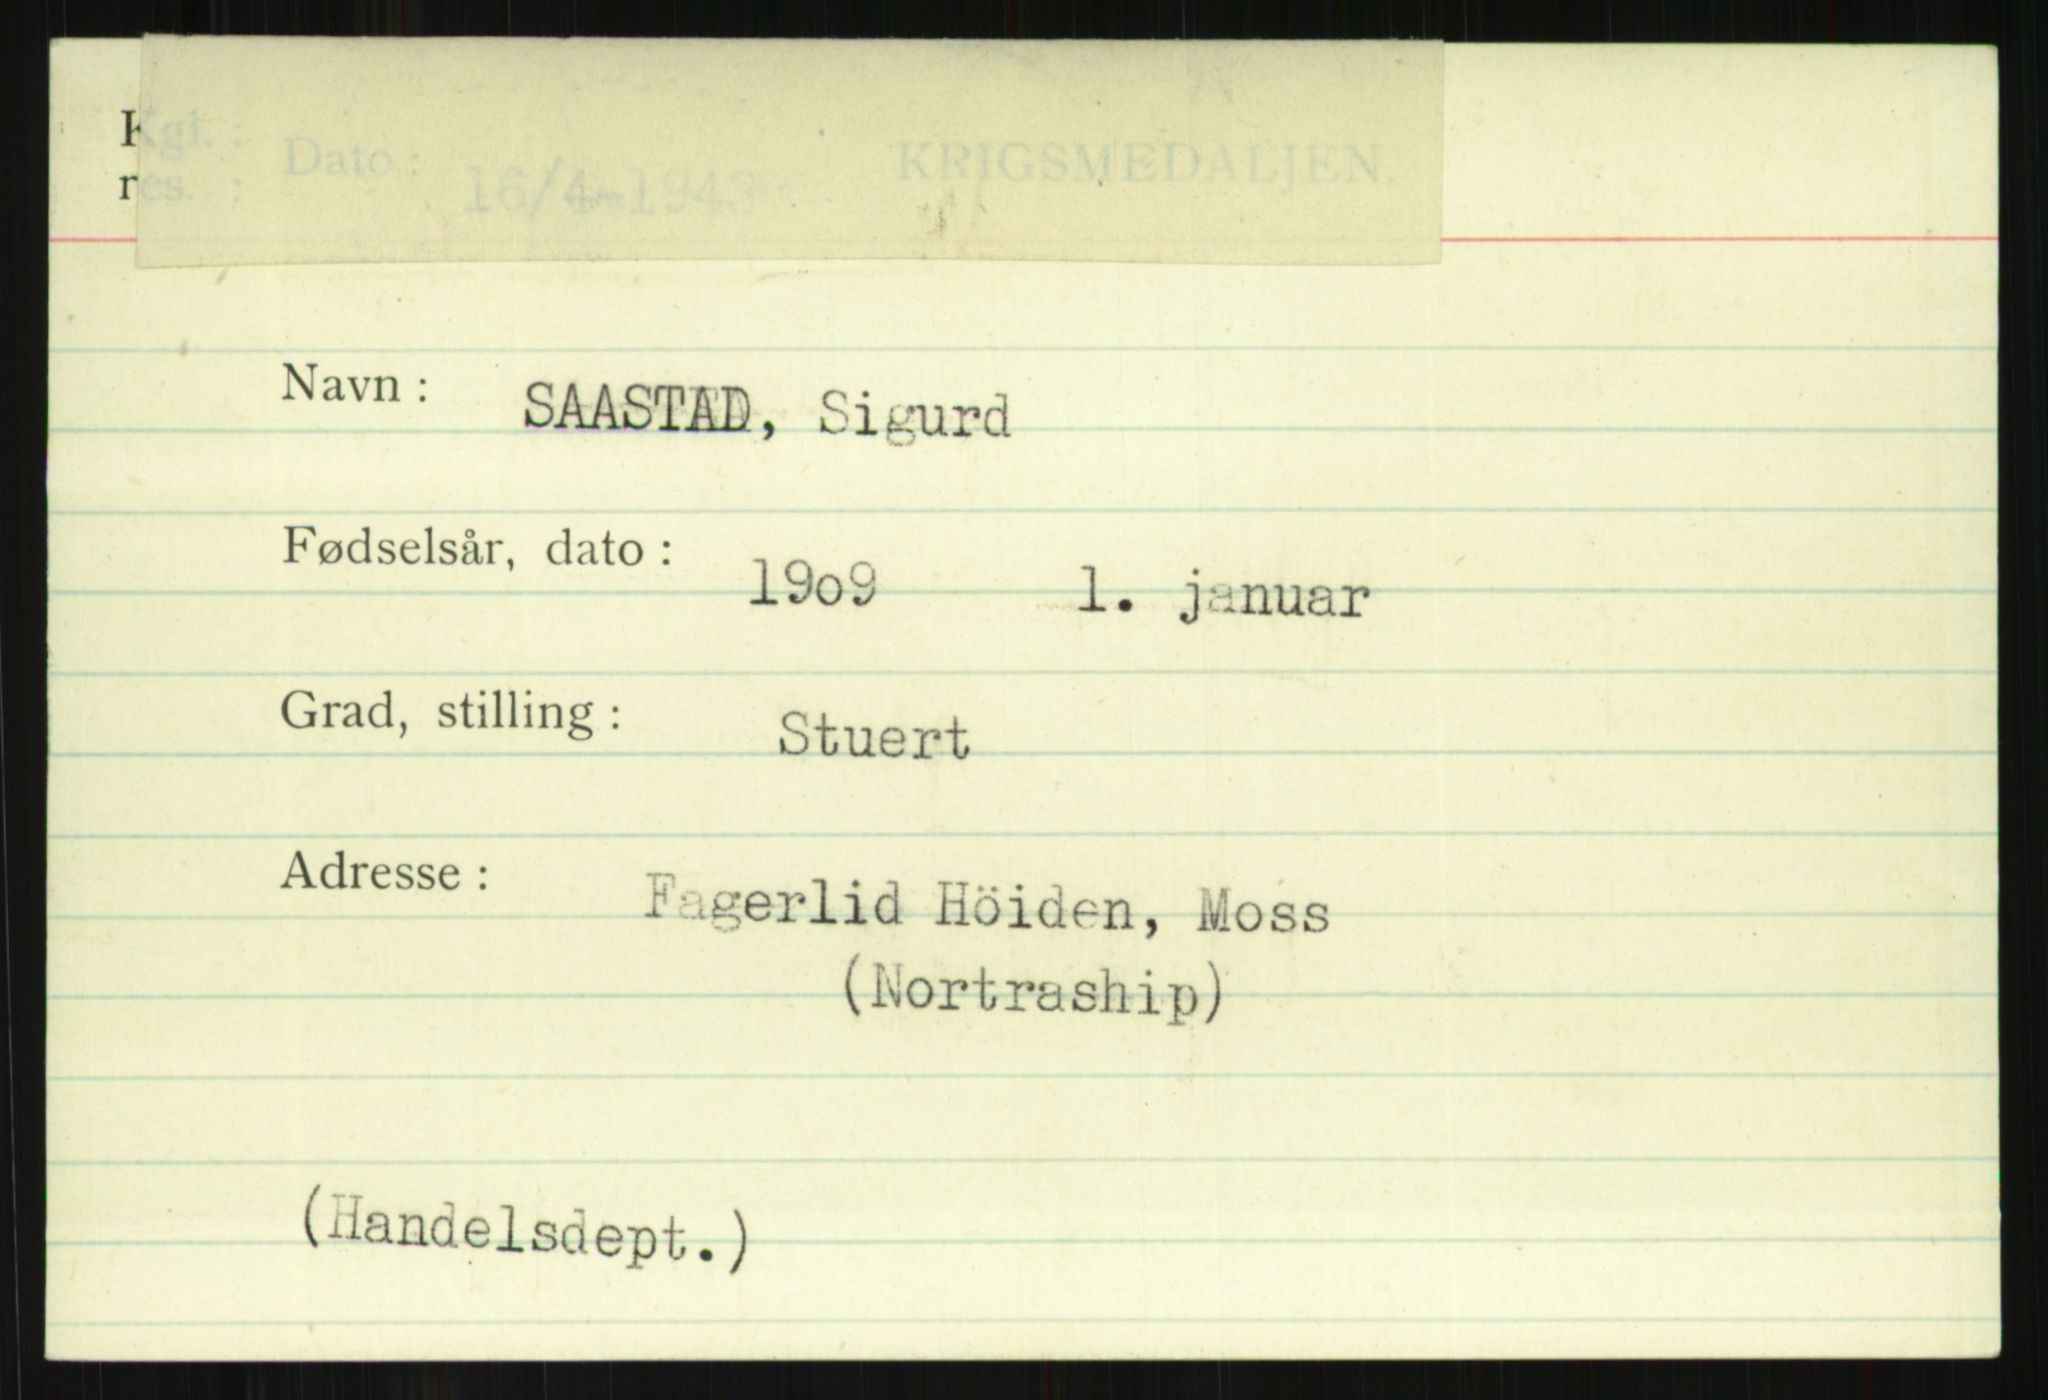 Kgl. : Dato : 16/4-1943 KRIGSMEDALJEN.
res. :
Navn : SAASTAD, Sigurd
Fødselsår, dato : 19o9 1. januar
Grad, stilling : Stuert
Adresse : Fagerlid Höiden, Moss
(Nortraship)
(Handelsdept.)